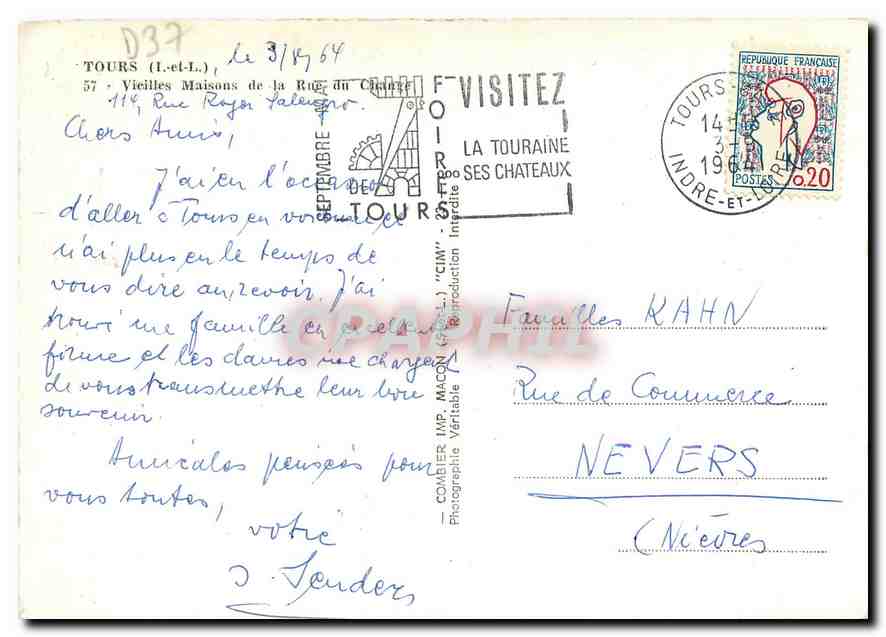 D37
TOURS (I.-et-L.), le 3/9/64
57 - Vieilles Maisons de la Rue du Change
114, Rue Roger Salengro.
Chers Amis,
J'ai eu l'occasion
d'aller à Tours en voiture et
n'ai plus eu le temps de
vous dire au revoir. J'ai
trouvé me famille en excellente
forme et les dames me chargent
de vous transmettre leur bon
souvenir.
Amicales pensées pour
vous toutes,
votre
J. Senders
SEPTEMBRE MAI
FOIRES
DE
TOURS
VISITEZ
LA TOURAINE
SES CHATEAUX
TOURS
3-9
1964
INDRE-ET-LOIRE
REPUBLIQUE FRANÇAISE
POSTES 0.20
COMBIER IMP. MACON (S.-et-L.) "CIM"
Photographie Véritable - Reproduction Interdite
CPAPHIL
Familles KAHN
Rue de Commerce
NEVERS
(Nièvres)